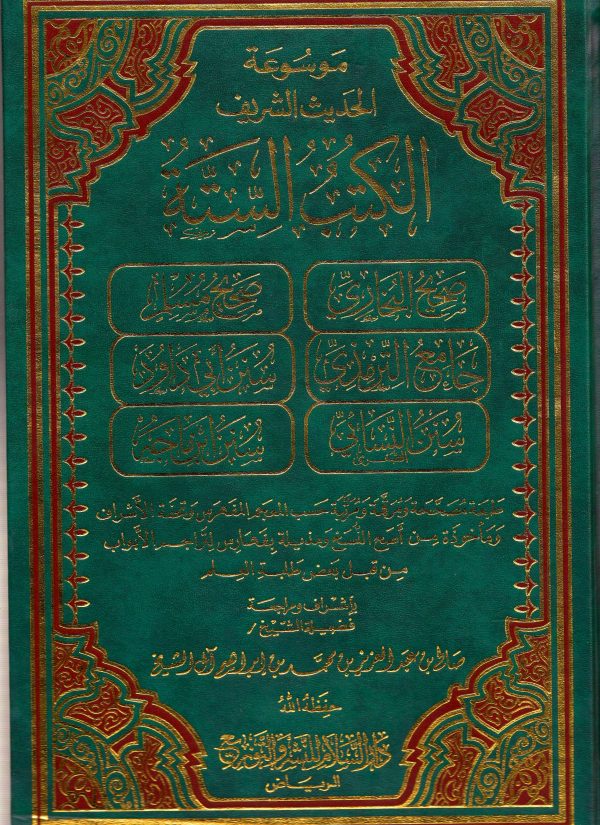 موسوعة
الحديث الشريف
الكُتُبُ السِّتَّةُ
صَحِيحُ البُخَارِيِّ
صَحِيحُ مُسْلِم
جَامِعُ التِّرمِذِيِّ
سُنَنُ أَبِي دَاوُد
سُنَنُ النَّسَائِيِّ
سُنَنُ ابْنِ مَاجَه
طبعة مصححة ومرقمة ومرتبة حسب المعجم المفهرس وتحفة الأشراف
ومأخوذة من أصح النسخ ومذيلة بفهارس لتراجم الأبواب
من قبل بعض طلبة العلم
بإشراف ومراجعة
فضيلة الشيخ /
صالح بن عبد العزيز بن محمد بن إبراهيم آل الشيخ
حفظه الله
دار السلام للنشر والتوزيع
الرياض